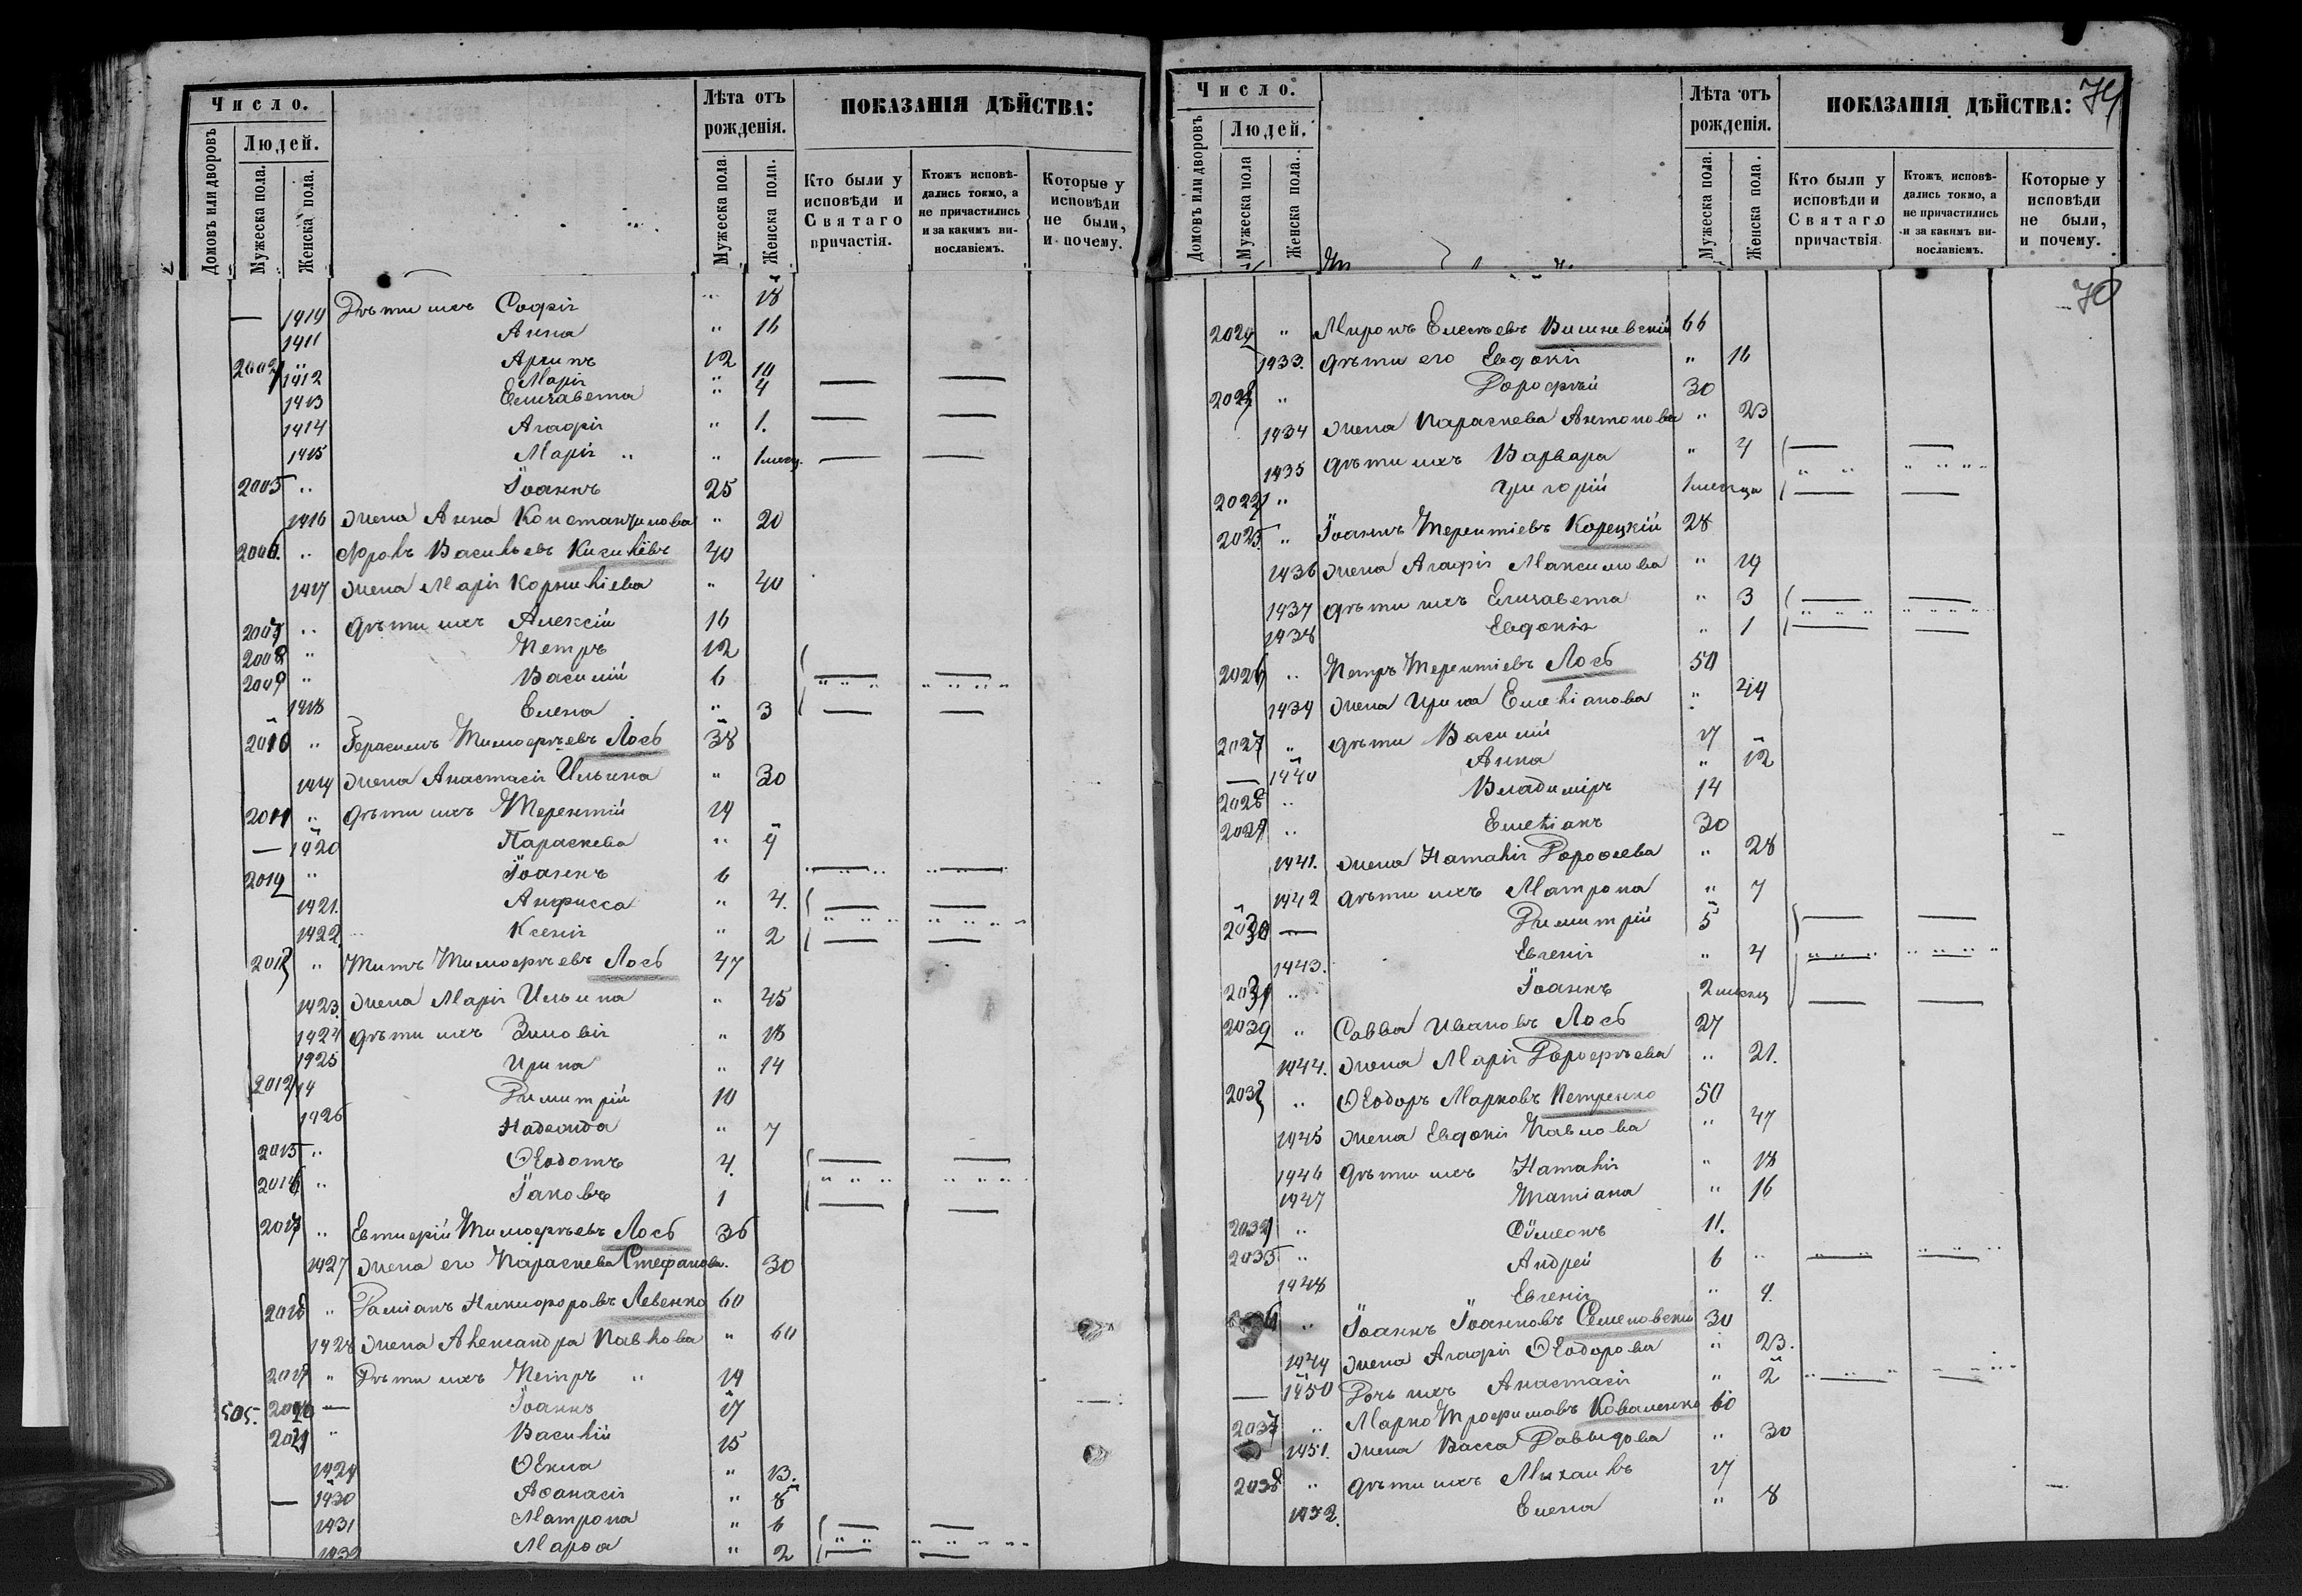 Число.
Домовъ или дворовъ
Людей.
Мужеска пола.
Женска пола.
Лѣта отъ рожденія.
Мужеска пола.
Женска пола.
ПОКАЗАНІЯ ДѢЙСТВА:
Кто были у исповѣди и Святаго причастія.
Ктожъ исповѣ-дались токмо, а не причастились и за какимъ ви-нославіемъ.
Которые у исповѣди не были, и почему.
— 1410 Дѣти ихъ Софія " 18
1411 Анна " 16
" Архипъ 12
1412 Марія " 10
1413 Елизавета " 4
1414 Агафія " 1.
1415 Марія " "
2005 " Іоаннъ 25
1416 жена Анна Константинова " 20
2006. " Фролъ Васильевъ Киселёвъ 40
1417 жена Марія Корниліева " 40
2007 " дѣти ихъ Алексій 16
2008 " Петръ 12
2009 " Василій 6
1418 Елена " 3
2010 " Герасимъ Тимоѳеевъ Лось 38
1419 жена Анастасія Ильина " 30
2011 " дѣти ихъ Терентій 14
— 1420 Параскева " 9
2012 " Іоаннъ 6
1421. Анфисса " 4.
1422 Ксенія " 2
2013 " Титъ Тимоѳеевъ Лось 47
1423. жена Марія Ильина " 45
1424 дѣти ихъ Зиновія " 18
1425 Ирина " 14
Димитрій 10
1426 Надежда " 7
2015 " Ѳеодотъ 4.
2016 " Іаковъ 1
2017 " Тимоѳеевъ Лось 36
1427 жена его Параскева Стефанова. 30
2018 " Даміанъ Никифоровъ Левенко 60
1428 жена Александра Павлова " 60
2019 " Дѣти ихъ Петръ " 19
505. 2020 — Іоаннъ 17
2021 " Василій 15
1429 Ѳекла " 13.
— 1430 Аѳанасія " 8
1431 Матрона " 6
1432 Марѳа " 2
Число.
Домовъ или дворовъ
Людей.
Мужеска пола
Женска пола.
Лѣта отъ рожденія.
Мужеска пола.
Женска пола.
ПОКАЗАНІЯ ДѢЙСТВА:
Кто были у исповѣди и Святаго причаствія
Ктожъ исповѣ-дались токмо, а не причастились и за какимъ ви-нославіемъ.
Которые у исповѣди не были, и почему.
70
" Миронъ Вишневскій 66
1433. дѣти его Евдокія " 16
" Дороѳей 30
1434 жена Параскева Антонова " 23
1435 дѣти ихъ Варвара " 4
" Григорій 1 месяца
2025. " Іоаннъ Терентіевъ Корецкій 28
1436 жена Агафія Максимова " 19
1437 дѣти ихъ Елизавета " 3
1438 Евдокія " 1
2026 " Петръ Терентіевъ Лось 50
1439 жена Ирина Емеліанова " 49
2027 " дѣти Василій 17
— 1440 Анна " 12
2028 " Владиміръ 14
2029 " Емеліанъ 30
1441. жена Наталія Дороѳеева " 28
1442 дѣти ихъ Матрона " 7
2030 — Димитрій 5
1443. Евгенія " 4
2031 " Іоаннъ 2 месяц
2032 " Савва Ивановъ Лось 27
1444. жена Марія Дороѳеева " 21.
2033 " Ѳеодоръ Марковъ Петренко 50
1445 жена Евдокія Павлова " 47
1446 дѣти ихъ Наталія " 18
1447 Татіана " 16
2034 " Сѵмеонъ 11.
2035 " Андрей 6 "
1448 Евгенія " 4.
" Іоаннъ Іоанновъ Семеновскій 30
1449 жена Агафія Ѳеодорова " 23.
— 1450 Дочь ихъ Анастасія " 2
2037 " Марко Трофимовъ Коваленко 60
1451. жена Васса Давыдова " 30
2038 " дѣти ихъ Михаилъ 17
1452. Елена " 8